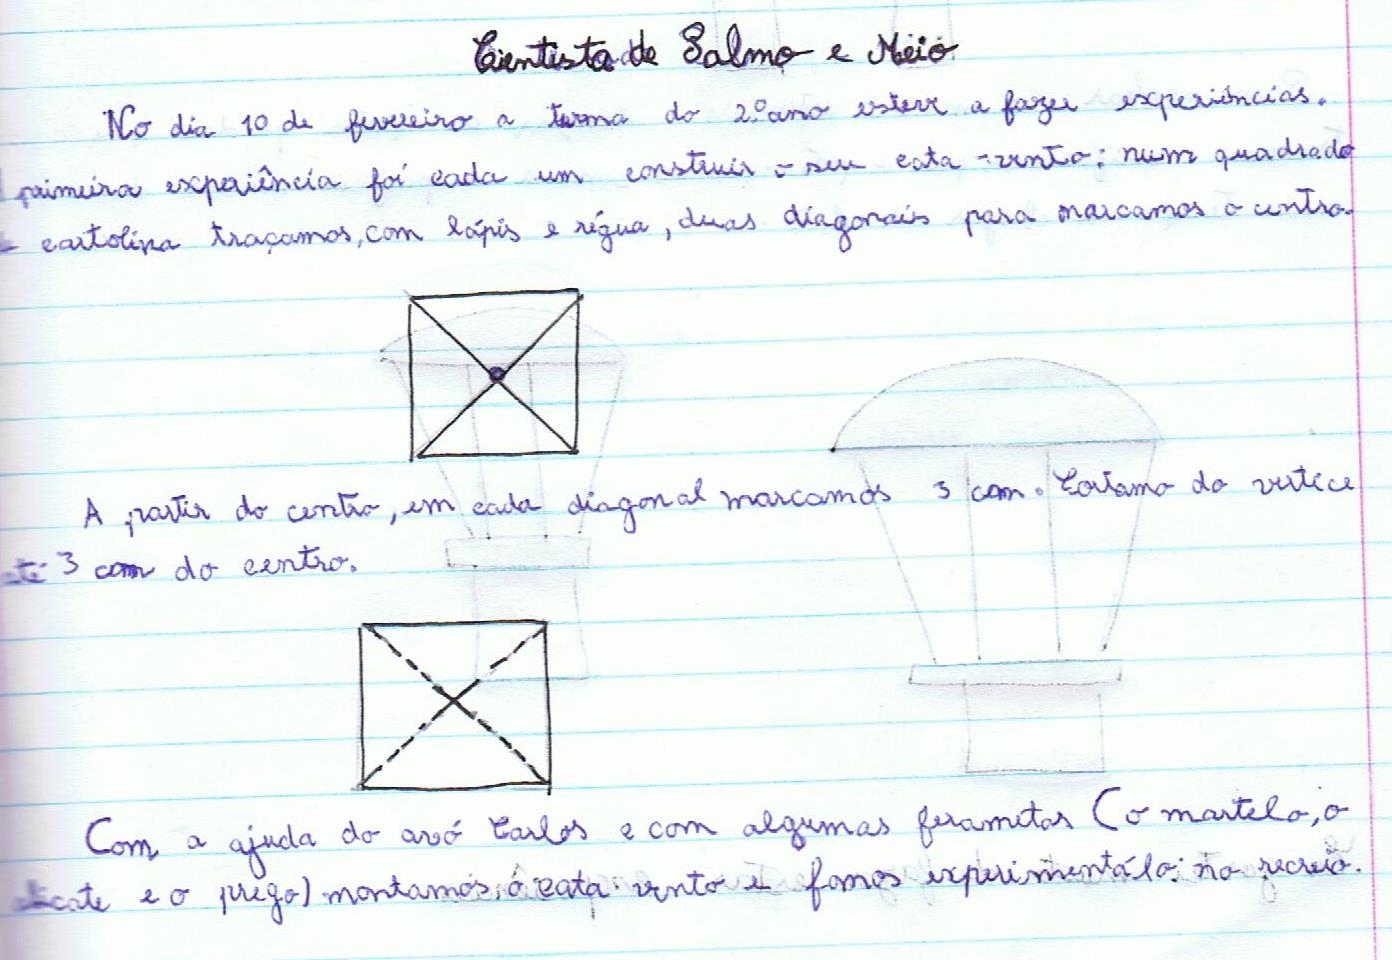 Cientista de Palmo e Meio
No dia 10 de fevereiro a turma do 2.º ano esteve a fazer experiências.
primeira experiência foi cada um construir o seu cata-vento: num quadrado
cartolina traçamos, com lápis e régua, duas diagonais para marcamos o centro.
A partir do centro, em cada diagonal marcamos 3 cm. Cortamo do vertice
até 3 cm do centro.
Com a ajuda do avó Carlos e com algumas ferametas (o martelo, o
alicate e o prego) montamos o cata vento e fomos experimentálo no recreio.